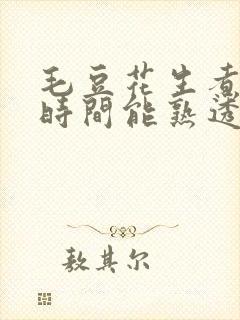 毛豆花生煮
時間能熟透
敖其尔